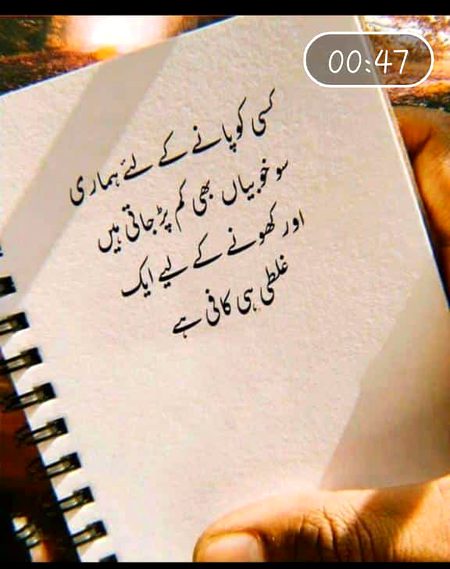 00:47
کسی کو پانے کے لئے ہماری
سو خوبیاں بھی کم پڑ جاتی ہیں
اور کھونے کے لیے ایک
غلطی ہی کافی ہے